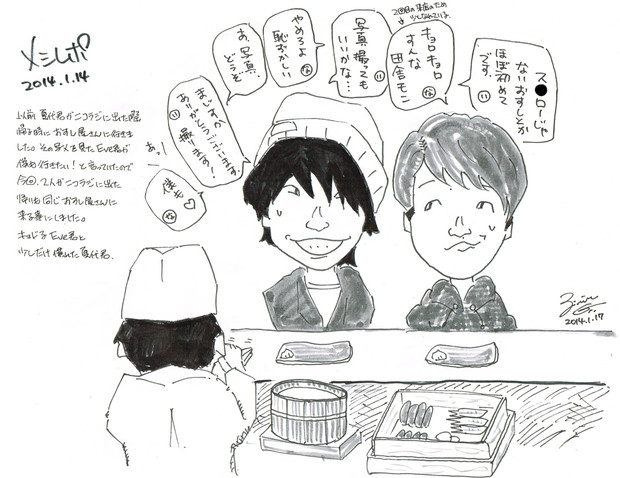 メシレポ
2014.1.14
以前 夏代君がニコラジに出た時
帰る時におすし屋さんに行きま
した。その写メを見たEve君が
僕も行きたい!と言っていたので
今回、2人がニコラジに出た
帰りも同じおすし屋さんに
来る事にしました。
キョドるEve君と
少しだけ慣れた夏代君.
ス●ローじゃ
ないおすしとか
ほぼ初めて
です。
い
2回目の来店のため
少しなれている。
キョロキョロ
すんな
田舎モン
な
写真撮っても
いいかな…
い
やめろよ
恥ずかしい
な
あ、写真、
どうぞ
まいすか
ありがとうございます
撮ります!
い
あっ
僕も♡
な
2014.1.17